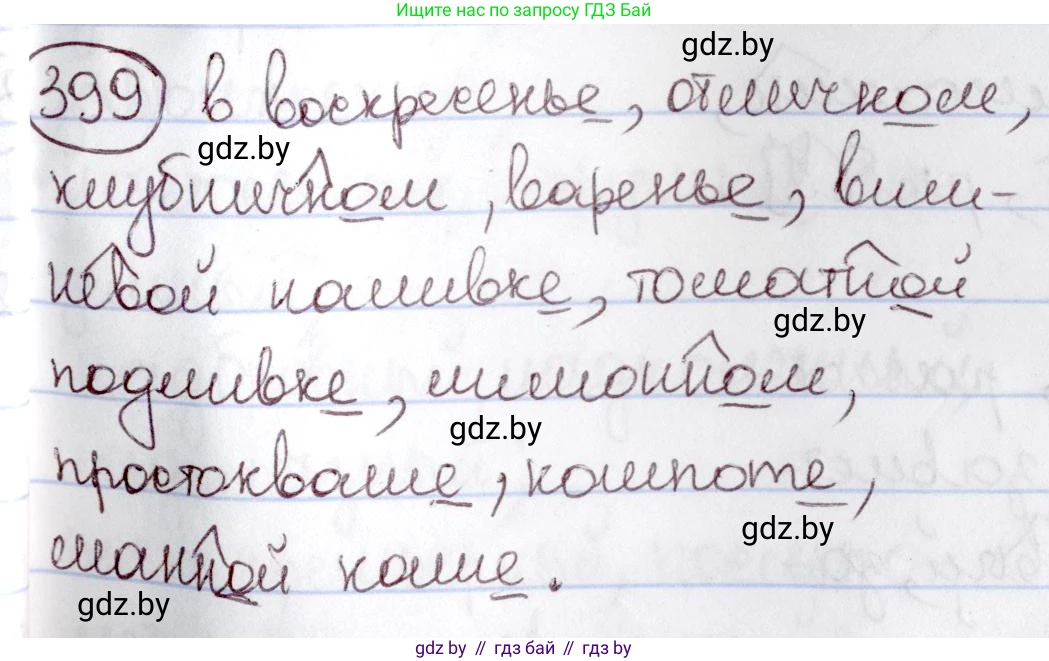 Ищите нас по запросу ГДЗ Бай
gdz.by
399 в воскресенье, отличном,
gdz.by
клубничном, варенье, виш-
невой наливке, томатной
gdz.by
подливке, лимонном,
gdz.by
простокваше, компоте,
gdz.by
манной каше.
gdz.by
gdz.by // гдз бай // гдз.by